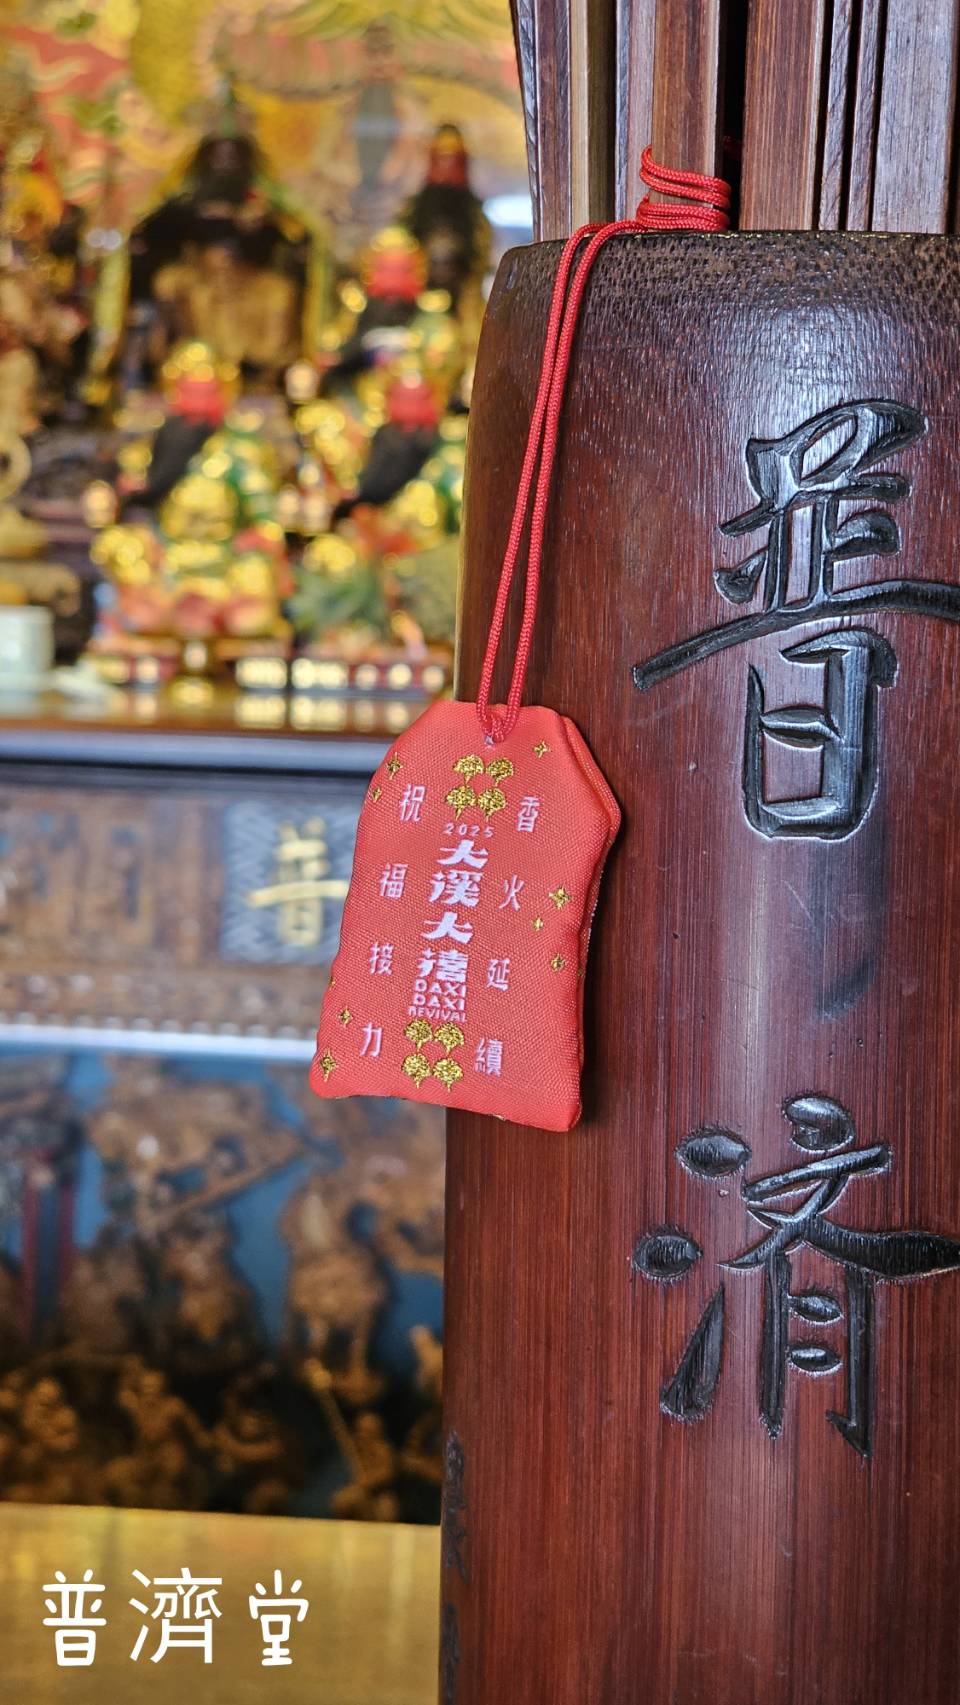 普濟
祝福接力
香火延續
2025
大溪大禧
DAXI
DAXI
REVIVAL
普
普濟堂